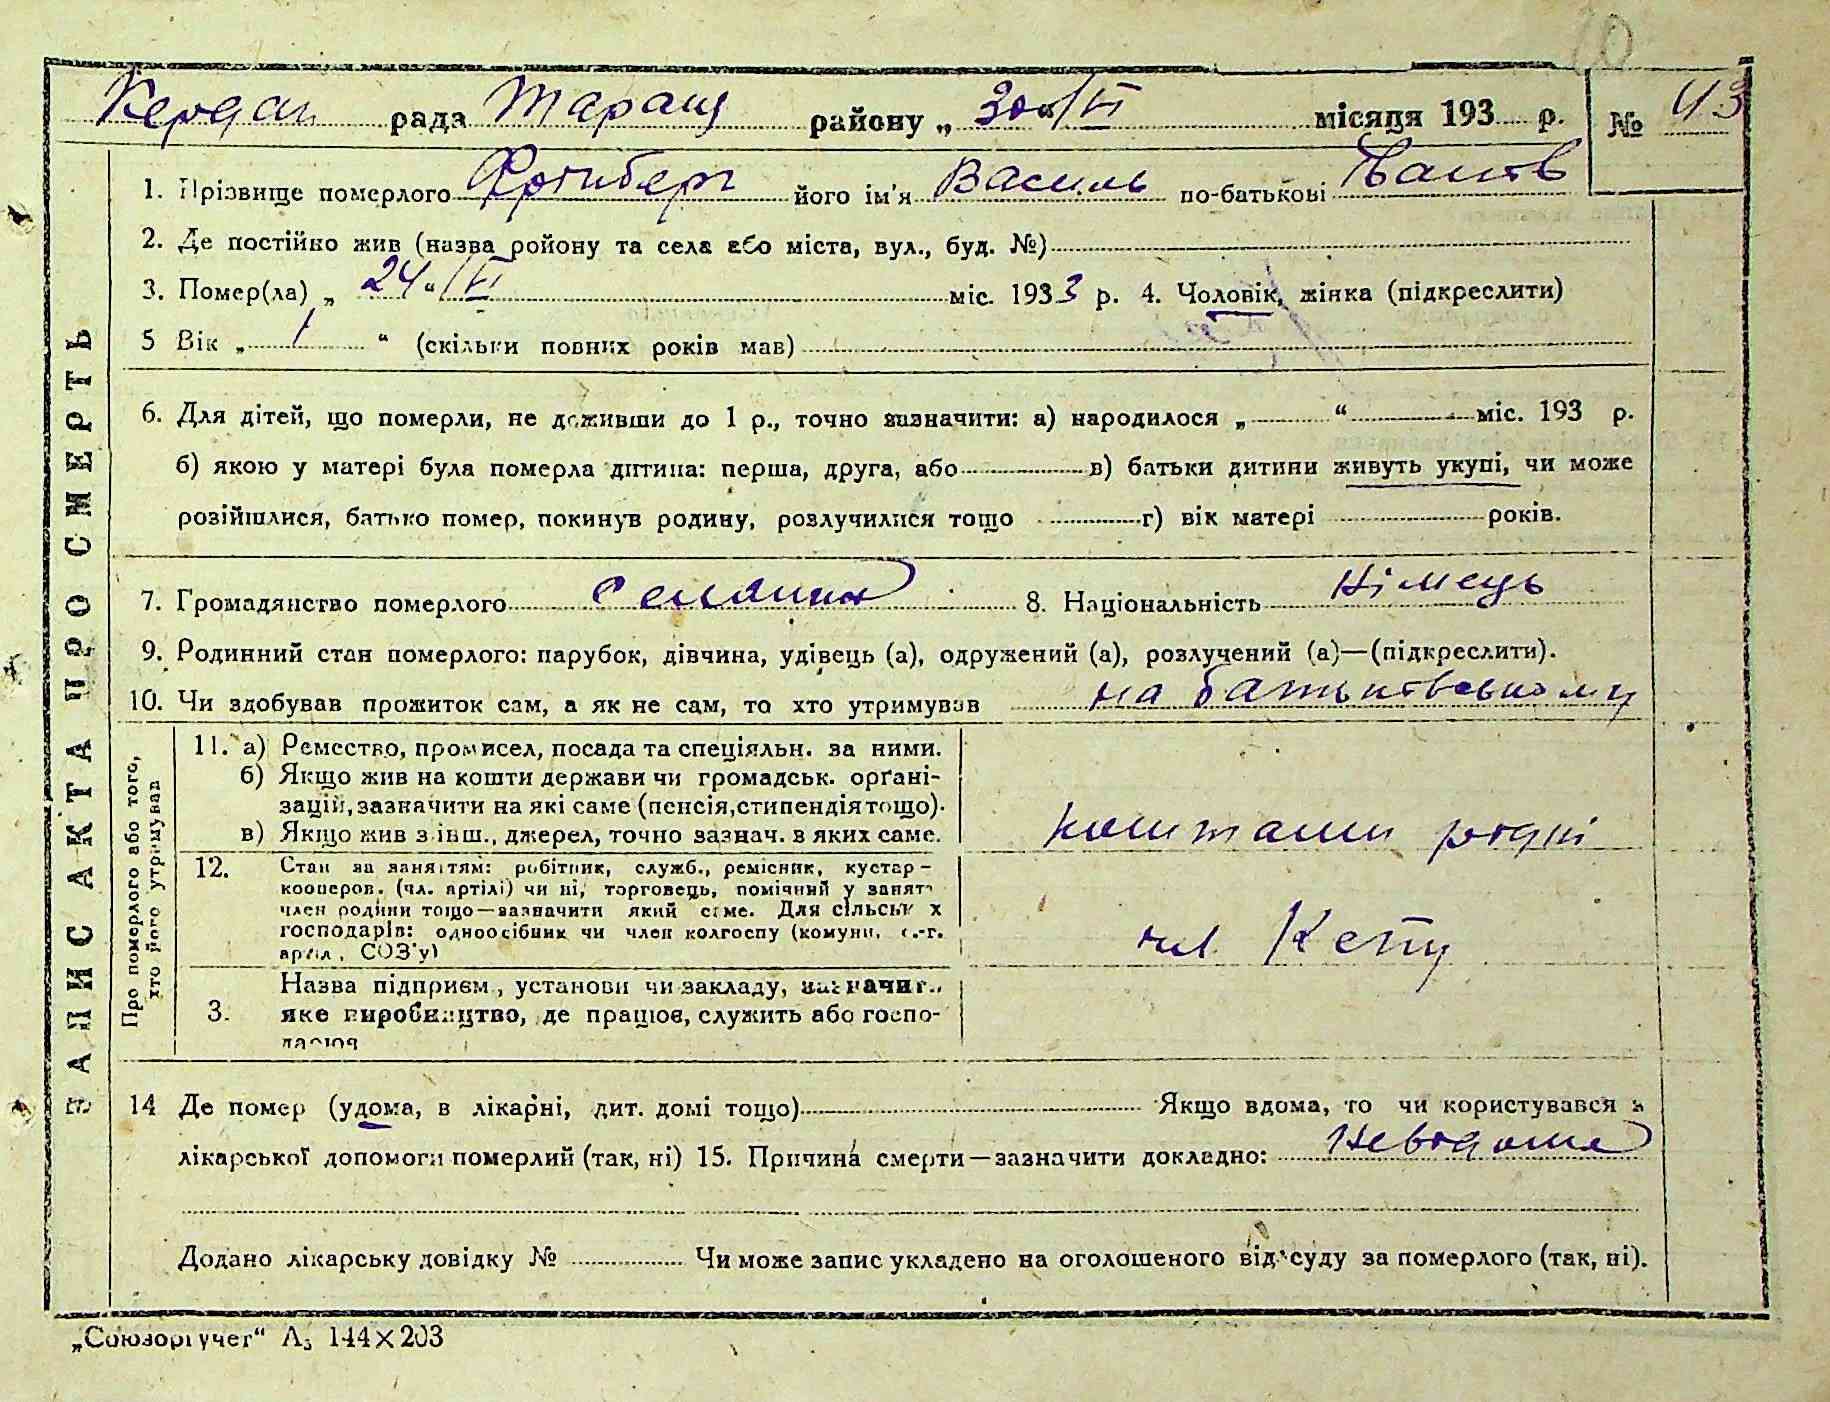 10
Кердан рада Таращ району „ 30 “ VI місяця 193 р. № 43
ЗАПИС АКТА ПРО СМЕРТЬ
1. Прізвище померлого його ім'я Василь по-батькові
2. Де постійно жив (назва ройону та села або міста, вул., буд. №)
3. Помер(ла) „ 24 “ VI міс. 1933 р. 4. Чоловік, жінка (підкреслити)
5 Вік „ 1 “ (скільки повних років мав)
6. Для дітей, що померли, не доживши до 1 р., точно зазначити: а) народилося „ “ міс. 193 р.
б) якою у матері була померла дитина: перша, друга, або в) батьки дитини живуть укупі, чи може
розійшлися, батько помер, покинув родину, розлучилися тощо г) вік матері років.
7. Громадянство померлого селянин 8. Національність німець
9. Родинний стан померлого: парубок, дівчина, удівець (а), одружений (а), розлучений (а)—(підкреслити).
10. Чи здобував прожиток сам, а як не сам, то хто утримував на батьківському
Про померлого або того,
хто його утримував
11. а) Ремество, промисел, посада та спеціяльн. за ними.
б) Якщо жив на кошти держави чи громадськ. орґані-
зацій, зазначити на які саме (пенсія, стипендія тощо).
в) Якщо жив з інш., джерел, точно зазнач. в яких саме.
коштами рідні
12. Стан за заняттям: робітник, служб., ремісник, кустар –
кооперов. (чл. артілі) чи ні, торговець, помічний у занят
член родини тощо—зазначити який саме. Для сільськ х
господарів: одноосібник чи член колгоспу (комуни, с.-г.
артіл, СОЗ'у)
чл.
3. Назва підприєм., установи чи закладу, зазначит.,
яке виробництво, де працює, служить або госпо-
дарює
14 Де помер (удома, в лікарні, дит. домі тощо) Якщо вдома, то чи користувався з
лікарської допомоги померлий (так, ні) 15. Причина смерти—зазначити докладно: Невідома
Додано лікарську довідку № Чи може запис укладено на оголошеного від суду за померлого (так, ні).
„Союзоргучет“ А5 144×203